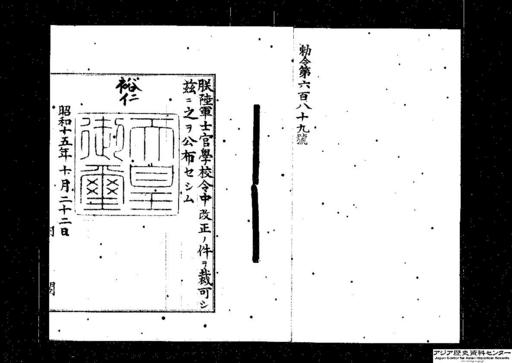 勅令第六百八十九號
朕陸軍士官學校令中改正ノ件ヲ裁可シ
茲ニ之ヲ公布セシム
裕仁
天皇
御璽
昭和十五年十月二十二日
アジア歴史資料センター
Japan Center for Asian Historical Records